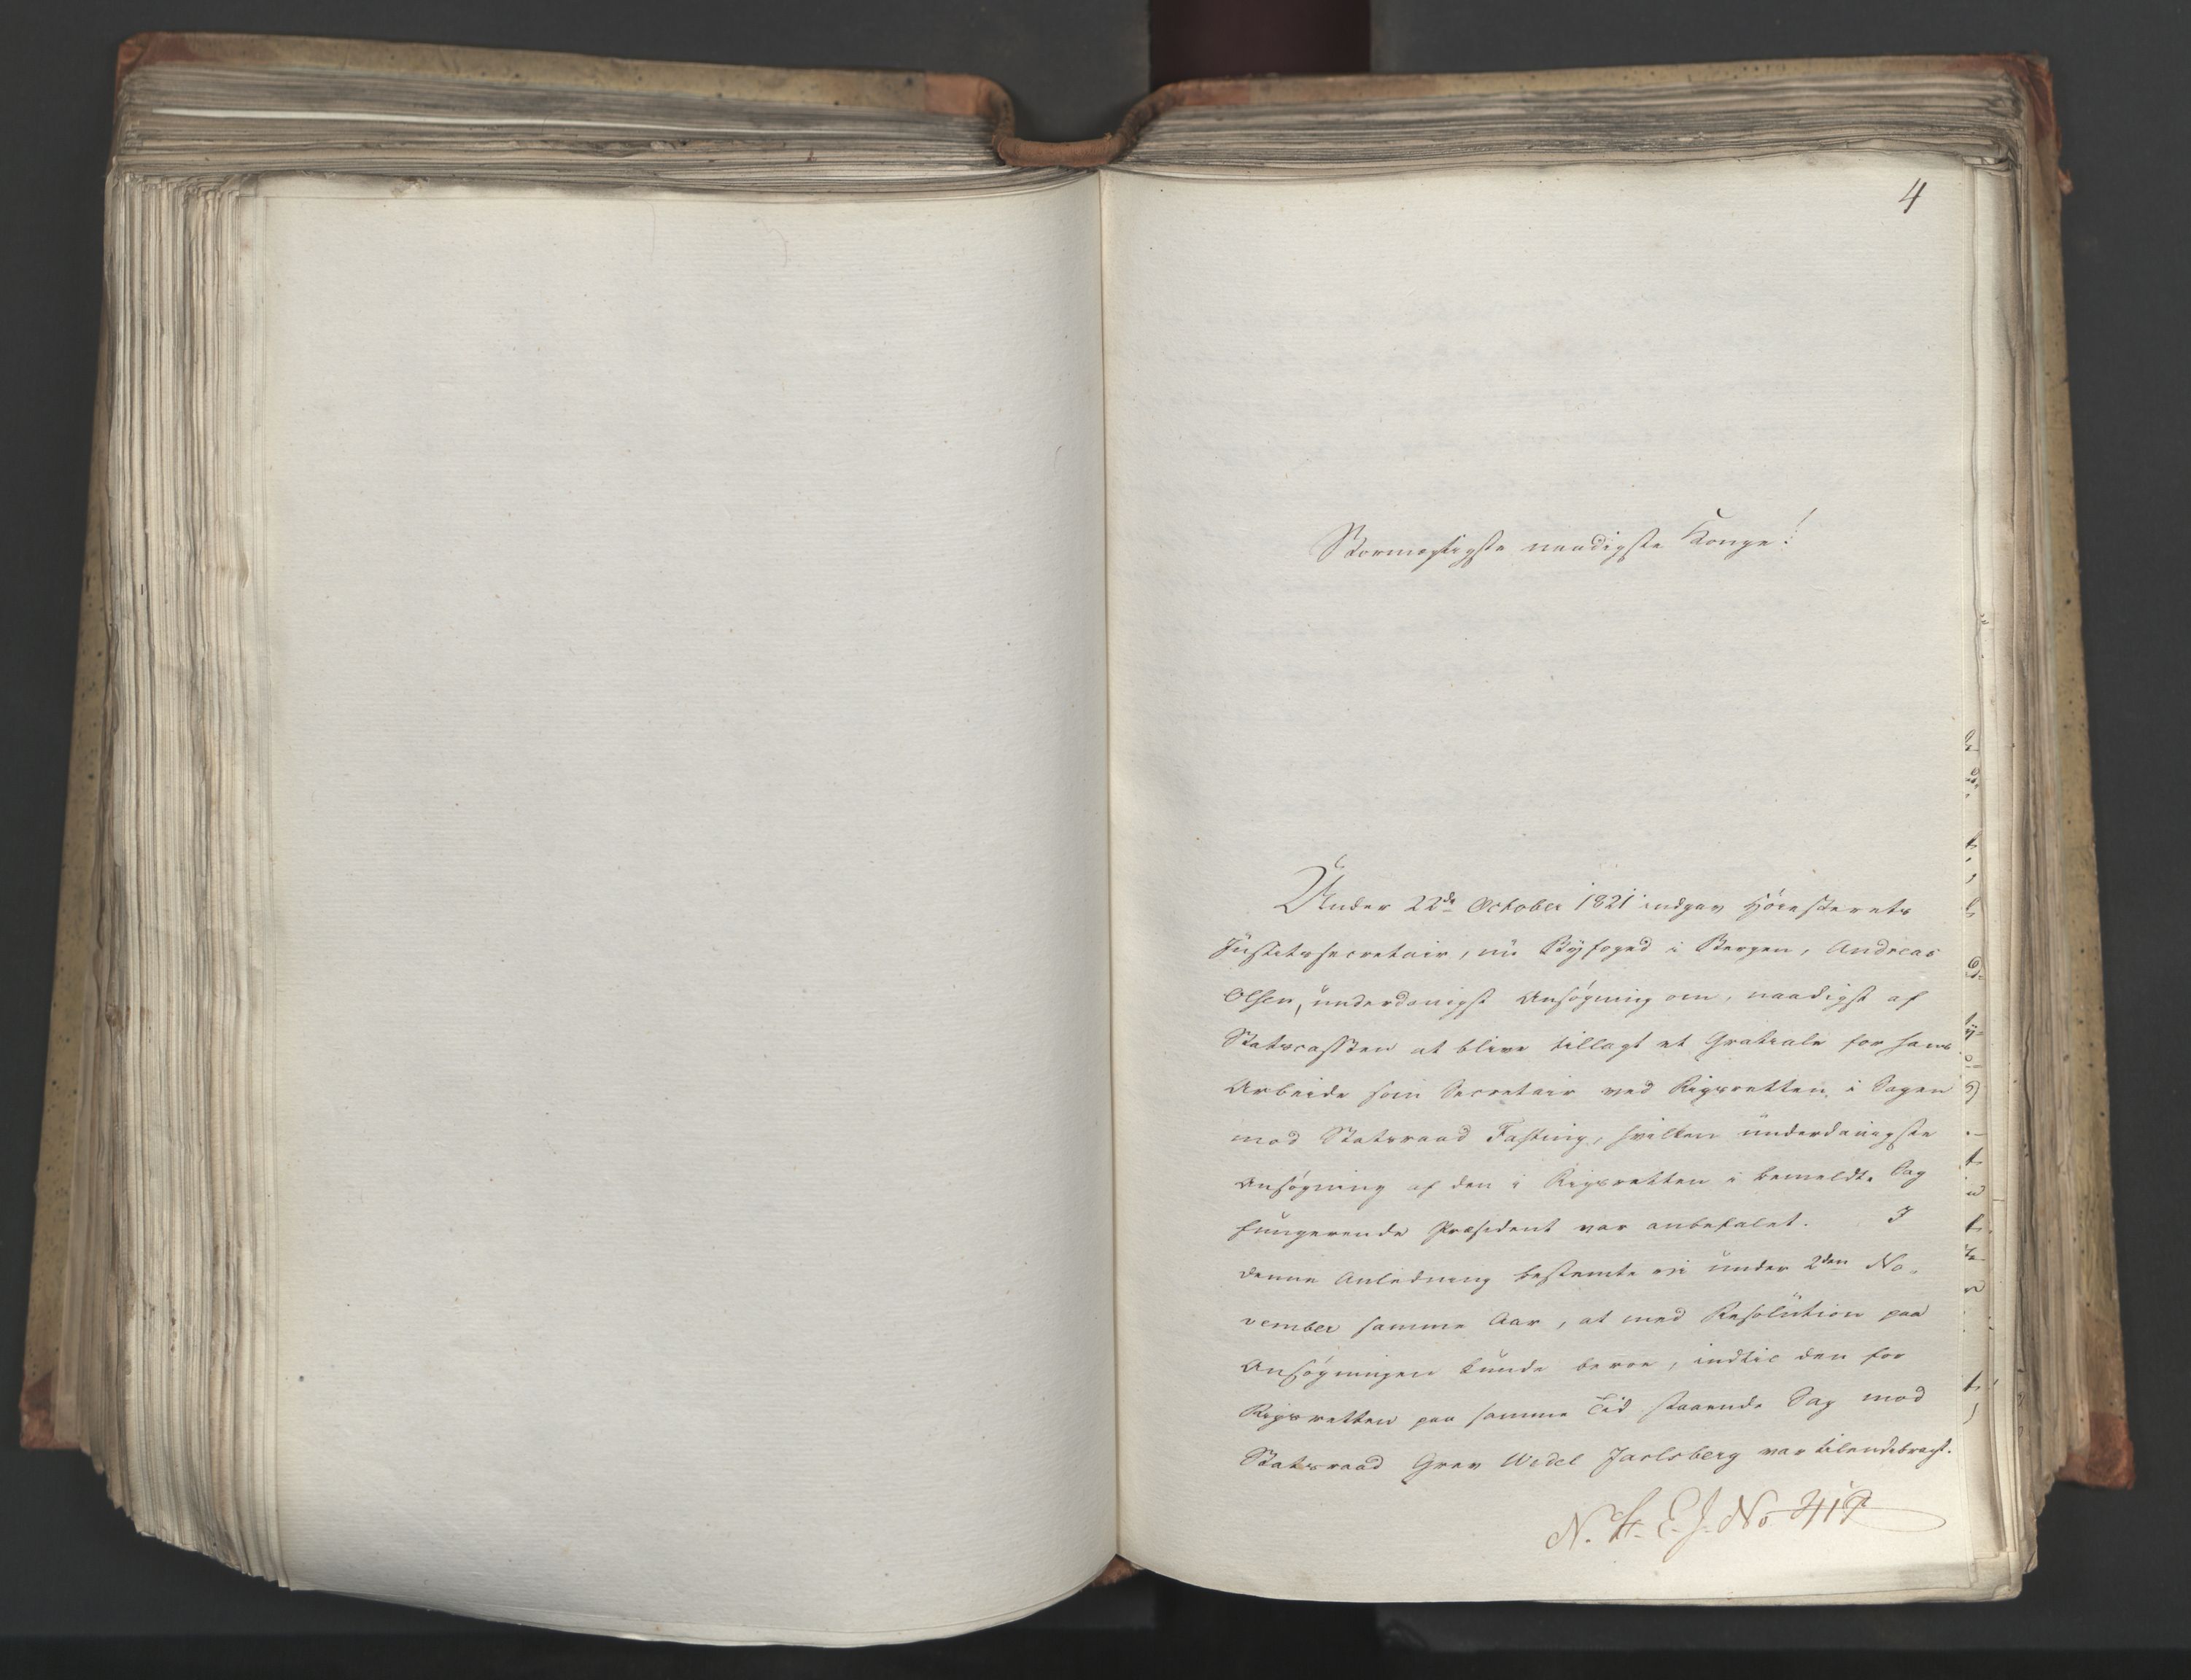 4
Stormægtigste naadigste Konge!
Under 22de October 1821 indgav Höiesterets
Justitssecretair, nu Byfoged i Bergen, Andreas
Olsen, underdanigst Ansögning om, naadigst af
Statscassen at blive tillagt et Gratiale for hans
Arbeide som Secretair ved Rigsretten i Sagen
mod Statsraad Fasting, hvilken underdanigste
Ansögning af den i Rigsretten i bemeldte Sag
fungerende Præsident var anbefalet. I
denne Anledning bestemte vi under 2den No-
vember samme Aar, at med Resolution paa
Ansögningen kunde beroe, indtil den for
Rigsretten paa samme Tid staaende Sag mod
Statsraad Grev Wedel Jarlsberg var tilendebragt.
N. H. E. J. No